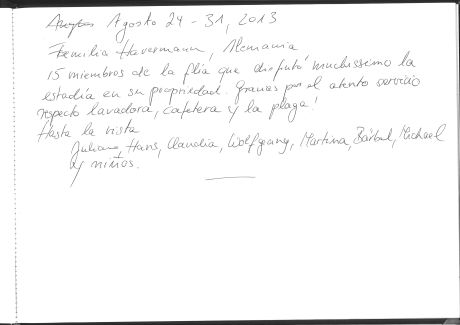 Agosto 24 - 31, 2013
Familia Havermann, Alemania
15 miembros de la flia que disfrutó muchissimo la
estadía en su propriedad. Gracias por el atento servicio
respecto lavadora, cafetera y la plaga!
Hasta la vista
Juliane, Hans, Claudia, Wolfgang, Martina, Bärbel, Michael
y niños.